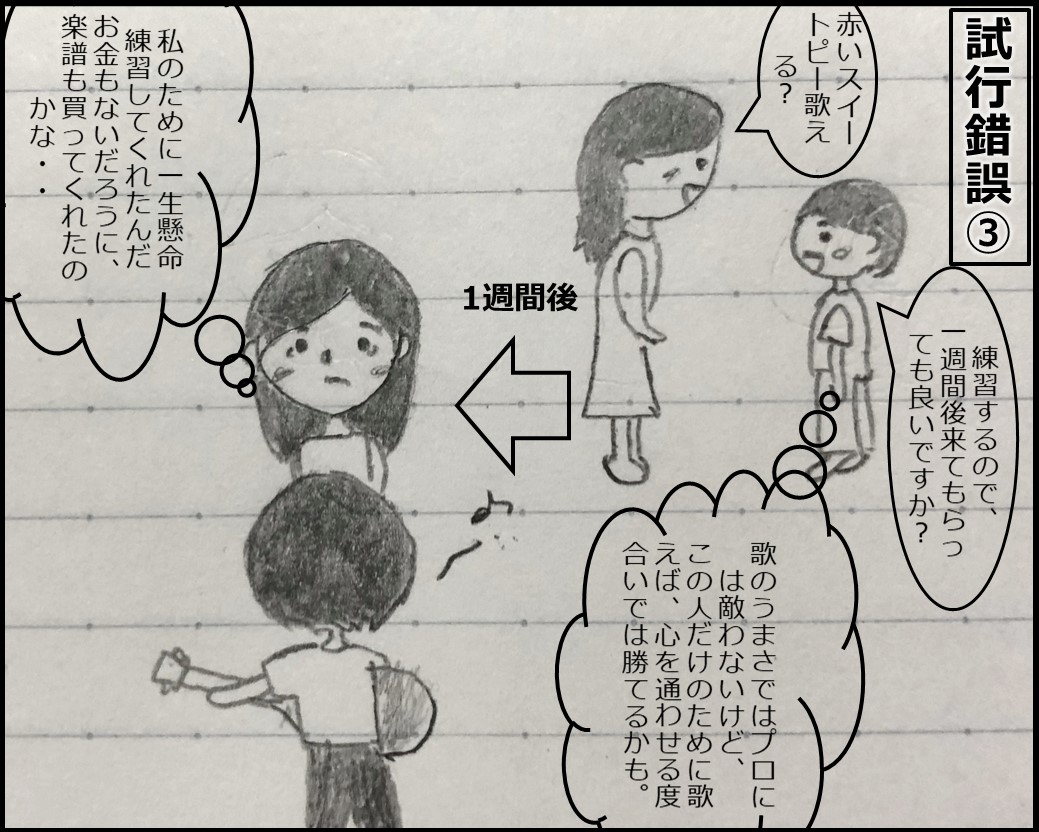 試行錯誤③
赤いスイー
トピー歌え
る？
練習するので、
一週間後来てもらっ
ても良いですか？
歌のうまさではプロに
は敵わないけど、
この人だけのために歌
えば、心を通わせる度
合いでは勝てるかも。
1週間後
私のために一生懸命
練習してくれたんだ
お金もないだろうに、
楽譜も買ってくれたの
かな・・